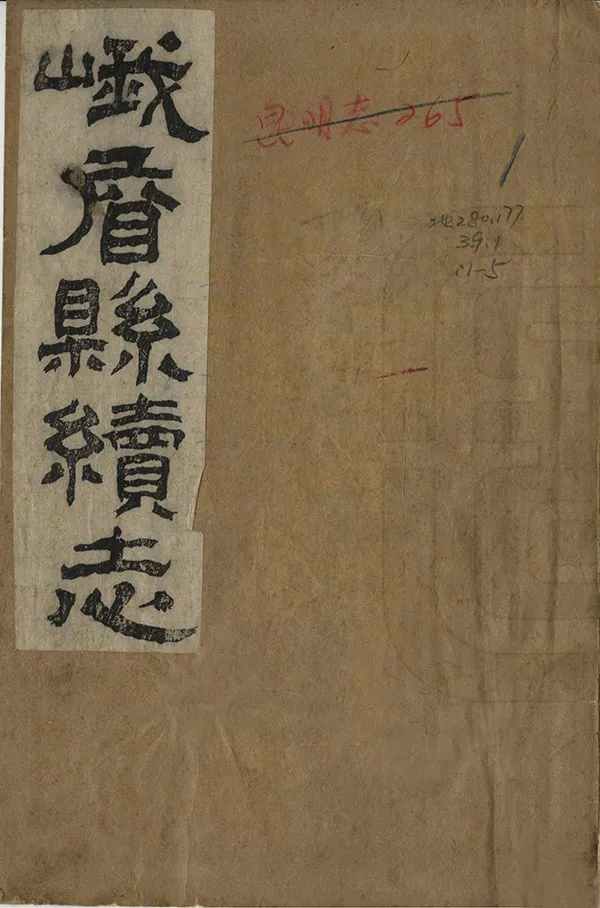 峨眉縣續志
昆明志265
地280.177
39.1
:1-5